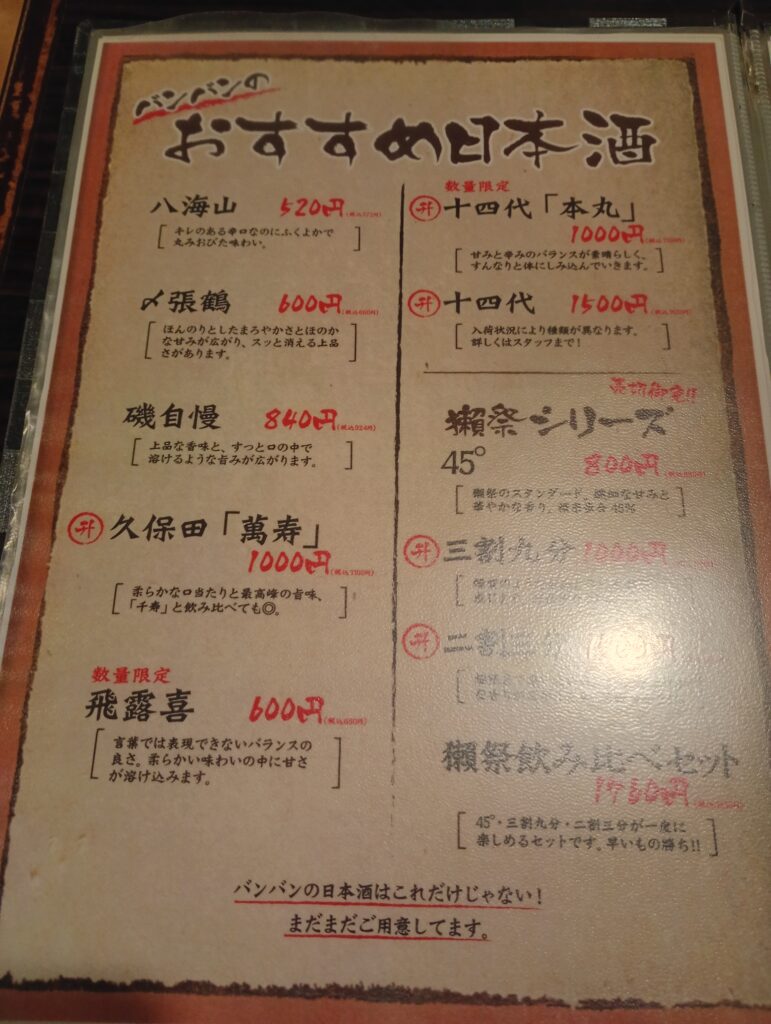 バンバンの
おすすめ日本酒
八海山 520円(税込572円)
キレのある辛口なのにふくよかで
丸みおびた味わい。
〆張鶴 600円(税込660円)
ほんのりとしたまろやかさとほのか
な甘みが広がり、スッと消える上品
さがあります。
磯自慢 840円(税込924円)
上品な香味と、すっと口の中で
溶けるような旨みが広がります。
升 久保田「萬寿」
1000円(税込1100円)
柔らかな口当たりと最高峰の旨味、
「千寿」と飲み比べても◎。
数量限定
飛露喜 600円(税込660円)
言葉では表現できないバランスの
良さ。柔らかい味わいの中に甘さ
が溶け込みます。
数量限定
升 十四代「本丸」
1000円(税込1100円)
甘みと辛みのバランスが素晴らしく、
すんなりと体にしみ込んでいきます。
升 十四代 1500円(税込1650円)
入荷状況により種類が異なります。
詳しくはスタッフまで!
売切御免!!
獺祭シリーズ
45° 800円(税込880円)
獺祭のスタンダード、繊細な甘みと
華やかな香り。精米歩合45%
升 三割九分 1000円
升 二割三分
獺祭飲み比べセット
1750円
45°・三割九分・二割三分が一度に
楽しめるセットです。早いもの勝ち!!
バンバンの日本酒はこれだけじゃない!
まだまだご用意してます。